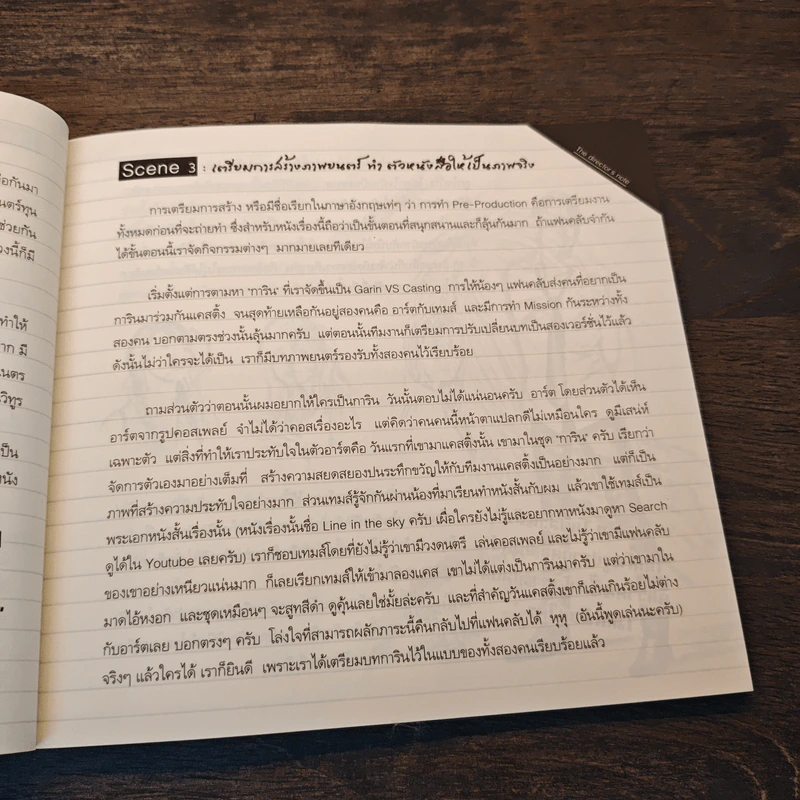 อกันมา
นตร์ทุน
ช่วยกัน
วงนี้ก็มี
ทำให้
าก มี
นตร
วิทูร
เป็น
หนัง
The director's note
Scene 3 : เตรียมการสร้างภาพยนตร์ ทำ ตัวหนังสือให้เป็นภาพจริง
การเตรียมการสร้าง หรือมีชื่อเรียกในภาษาอังกฤษเท่ๆ ว่า การทำ Pre-Production คือการเตรียมงาน
ทั้งหมดก่อนที่จะถ่ายทำ ซึ่งสำหรับหนังเรื่องนี้ถือว่าเป็นขั้นตอนที่สนุกสนานและก็ลุ้นกันมาก ถ้าแฟนคลับจำกัน
ได้ขั้นตอนนี้เราจัดกิจกรรมต่างๆ มากมายเลยทีเดียว
เริ่มตั้งแต่การตามหา ‘การิน’ ที่เราจัดขึ้นเป็น Garin VS Casting การให้น้องๆ แฟนคลับส่งคนที่อยากเป็น
การินมาร่วมกันแคสติ้ง จนสุดท้ายเหลือกันอยู่สองคนคือ อาร์ตกับเทมส์ และมีการทำ Mission กันระหว่างทั้ง
สองคน บอกตามตรงช่วงนั้นลุ้นมากครับ แต่ตอนนั้นทีมงานก็เตรียมการปรับเปลี่ยนบทเป็นสองเวอร์ชั่นไว้แล้ว
ดังนั้นไม่ว่าใครจะได้เป็น เราก็มีบทภาพยนตร์รองรับทั้งสองคนไว้เรียบร้อย
ถามส่วนตัวว่าตอนนั้นผมอยากให้ใครเป็นการิน วันนั้นตอบไม่ได้แน่นอนครับ อาร์ต โดยส่วนตัวได้เห็น
อาร์ตจากรูปคอสเพลย์ จำไม่ได้ว่าคอสเรื่องอะไร แต่คิดว่าคนคนนี้หน้าตาแปลกดีไม่เหมือนใคร ดูมีเสน่ห์
เฉพาะตัว แต่สิ่งที่ทำให้เราประทับใจในตัวอาร์ตคือ วันแรกที่เขามาแคสติ้งนั้น เขามาในชุด ‘การิน’ ครับ เรียกว่า
จัดการตัวเองมาอย่างเต็มที่ สร้างความสยดสยองปนระทึกขวัญให้กับทีมงานแคสติ้งเป็นอย่างมาก แต่ก็เป็น
ภาพที่สร้างความประทับใจอย่างมาก ส่วนเทมส์รู้จักกันผ่านน้องที่มาเรียนทำหนังสั้นกับผม แล้วเขาใช้เทมส์เป็น
พระเอกหนังสั้นเรื่องนั้น (หนังเรื่องนั้นชื่อ Line in the sky ครับ เผื่อใครยังไม่รู้และอยากหาหนังมาดูหา Search
ดูได้ใน Youtube เลยครับ) เราก็ชอบเทมส์โดยที่ยังไม่รู้ว่าเขามีวงดนตรี เล่นคอสเพลย์ และไม่รู้ว่าเขามีแฟนคลับ
ของเขาอย่างเหนียวแน่นมาก ก็เลยเรียกเทมส์ให้เข้ามาลองแคส เขาไม่ได้แต่งเป็นการินมาครับ แต่ว่าเขามาใน
มาดไอ้หงอก และชุดเหมือนๆ จะสูทสีดำ ดูคุ้นเลยใช่มั้ยล่ะครับ และที่สำคัญวันแคสติ้งเขาก็เล่นเกินร้อยไม่ต่าง
กับอาร์ตเลย บอกตรงๆ ครับ โล่งใจที่สามารถผลักภาระนี้คืนกลับไปที่แฟนคลับได้ ทุทุ (อันนี้พูดเล่นนะครับ)
จริงๆ แล้วใครได้ เราก็ยินดี เพราะเราได้เตรียมบทการินไว้ในแบบของทั้งสองคนเรียบร้อยแล้ว